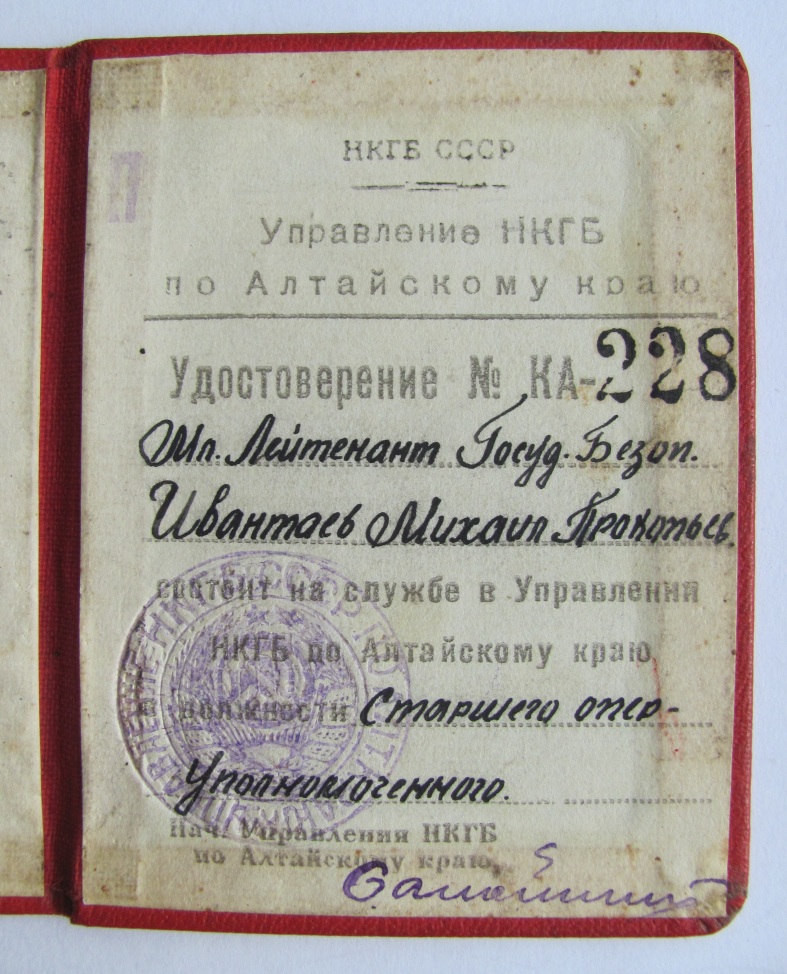 НКГБ СССР
Управление НКГБ
по Алтайскому краю
Удостоверение № КА-228
Мл. Лейтенант Госуд. Безоп.
Ивантаев Михаил Прокопьев.
состоит на службе в Управления
НКГБ по Алтайскому краю
в должности Старшего опер-
Уполномоченного.
Нач. Управления НКГБ
по Алтайскому краю